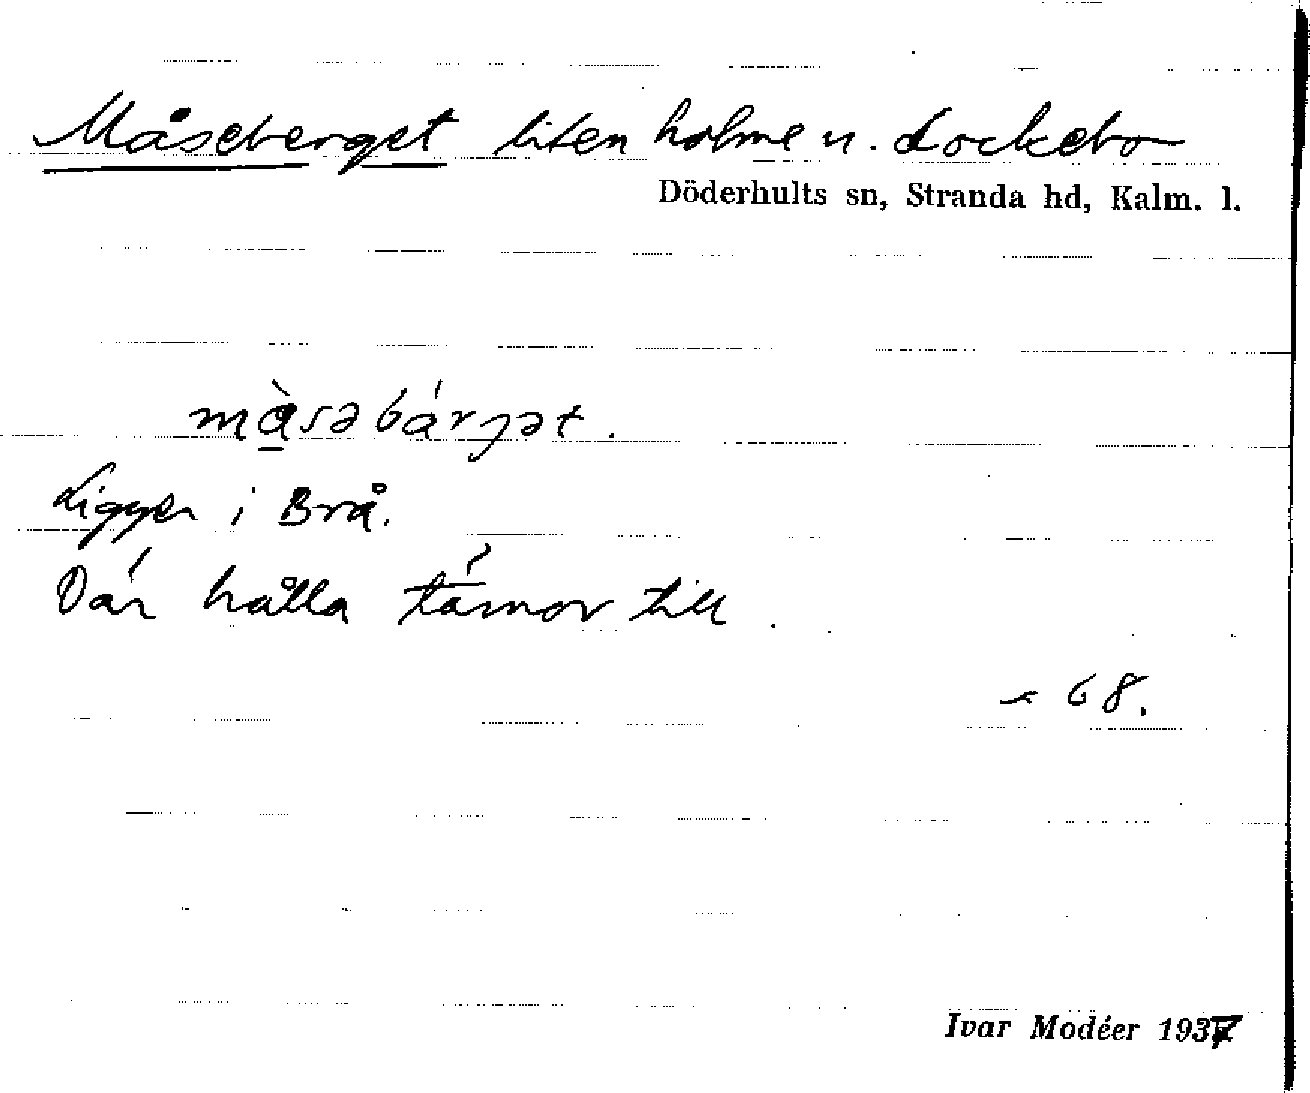 Måseberget liten holme u. Lockebo
Döderhults sn, Stranda hd, Kalm. l.
màsəbárjət.
Ligger i Brå.
Där hålla tärnor till.
68.
Ivar Modéer 1937